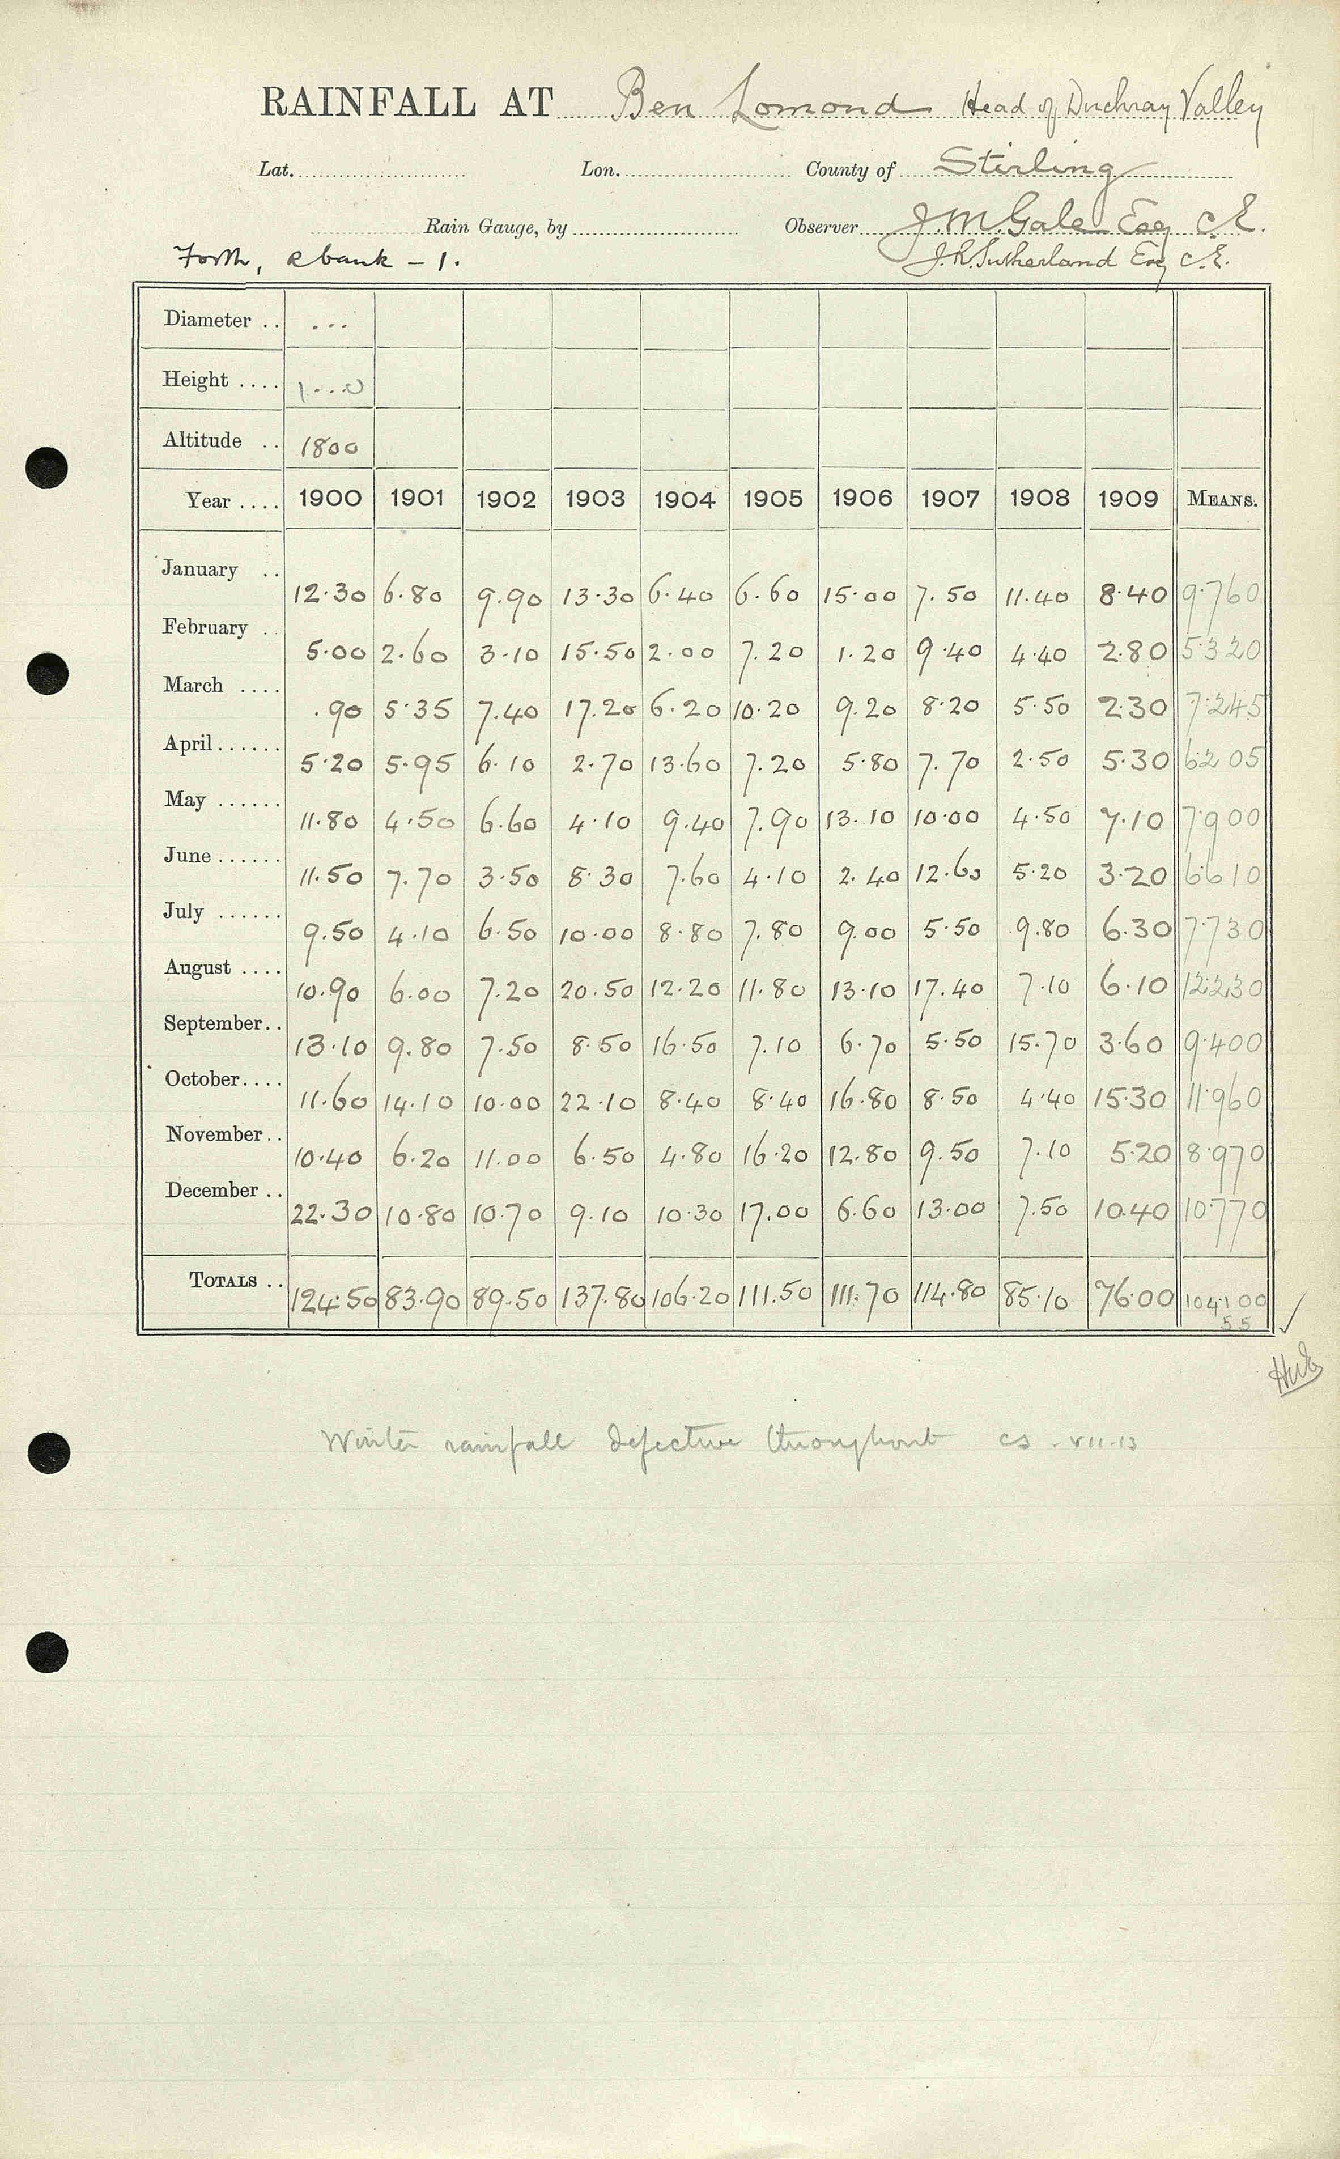 RAINFALL AT Ben Lomond Head of Duchray Valley
Lat. Lon. County of Stirling
Rain Gauge, by Observer J. M. Gale Esq C.E.
Forth, R bank - 1. J. R. Sutherland Esq C.E.
Diameter .. ...
Height .... 1...0
Altitude .. 1800
Year .... 1900 1901 1902 1903 1904 1905 1906 1907 1908 1909 MEANS.
January .. 12.30 6.80 9.90 13.30 6.40 6.60 15.00 7.50 11.40 8.40 9.760
February .. 5.00 2.60 3.10 15.50 2.00 7.20 1.20 9.40 4.40 2.80 5.320
March .... .90 5.35 7.40 17.20 6.20 10.20 9.20 8.20 5.50 2.30 7.245
April...... 5.20 5.95 6.10 2.70 13.60 7.20 5.80 7.70 2.50 5.30 6.205
May ...... 11.80 4.50 6.60 4.10 9.40 7.90 13.10 10.00 4.50 7.10 7.900
June...... 11.50 7.70 3.50 8.30 7.60 4.10 2.40 12.60 5.20 3.20 6.610
July ...... 9.50 4.10 6.50 10.00 8.80 7.80 9.00 5.50 9.80 6.30 7.730
August .... 10.90 6.00 7.20 20.50 12.20 11.80 13.10 17.40 7.10 6.10 12.230
September.. 13.10 9.80 7.50 8.50 16.50 7.10 6.70 5.50 15.70 3.60 9.400
October.... 11.60 14.10 10.00 22.10 8.40 8.40 16.80 8.50 4.40 15.30 11.960
November.. 10.40 6.20 11.00 6.50 4.80 16.20 12.80 9.50 7.10 5.20 8.970
December .. 22.30 10.80 10.70 9.10 10.30 17.00 6.60 13.00 7.50 10.40 10.770
TOTALS .. 124.50 83.90 89.50 137.80 106.20 111.50 111.70 114.80 85.10 76.00 104.100
55
Winter rainfall defective throughout CS. VII.13